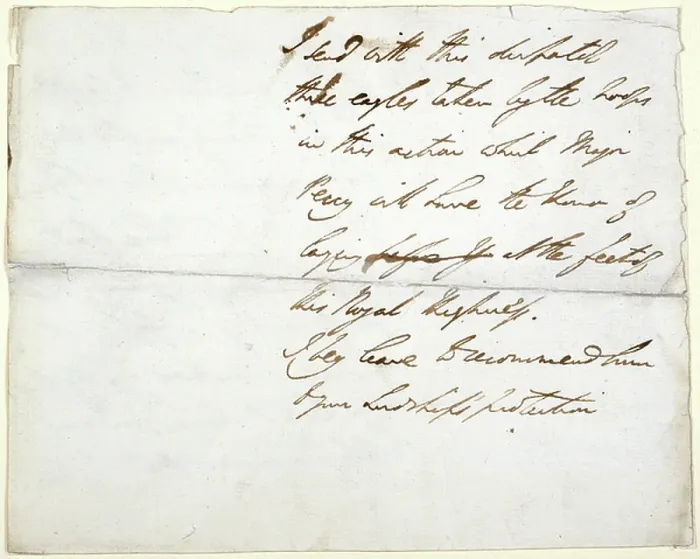 I send with this dispatch
three eagles taken by the troops
in this action which Major
Percy will have the Honor of
laying before Yr at the feet of
His Royal Highness.
I beg leave to recommend him
to your Lordship's protection